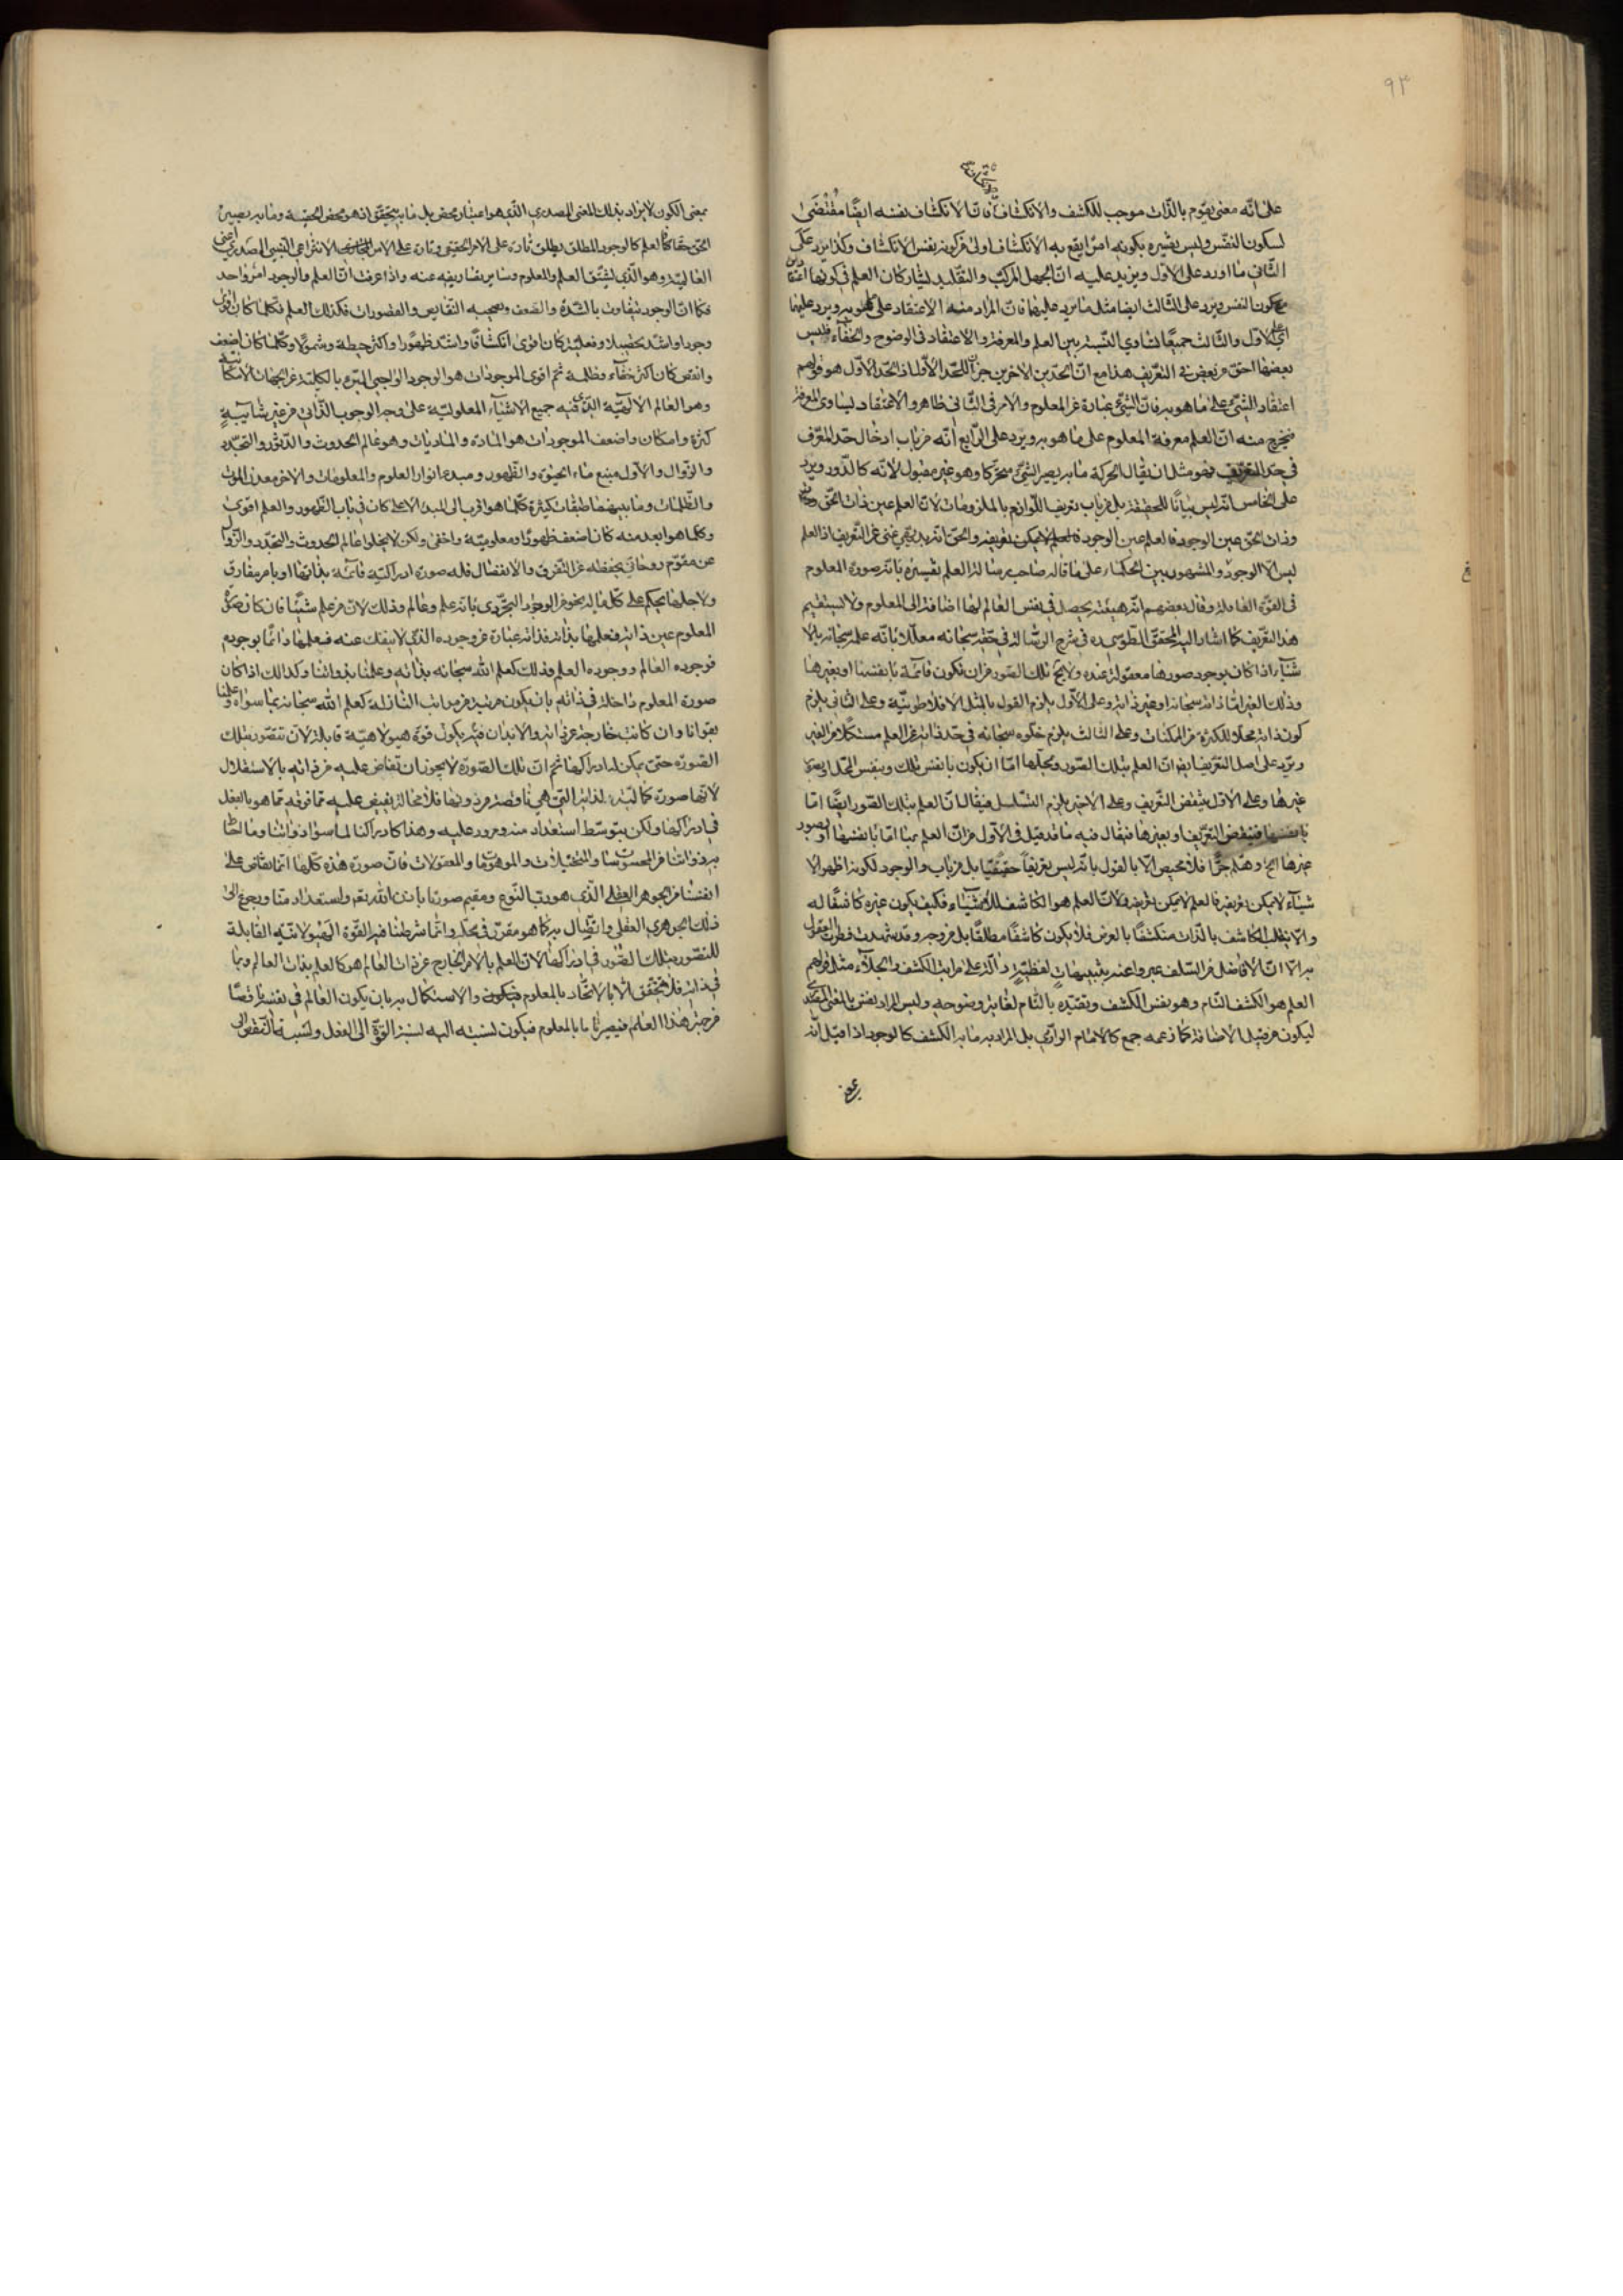 ٩٣
على انّه معنى يقوم بالذّات موجب للكشف والانكشاف فانّ الانكشاف نفسه ايضًا مقتضى
لسكون النفس وليس تفسيره بكونه امرًا يقع به الانكشاف اولى من كونه نفس الانكشاف وكذا يرد على
الثّاني ما اورد على الاوّل ويزيد عليه انّ الجهل المركّب والتّقليد يشاركان العلم في كونهما اعتقادا
مع سكون النفس ويرد على الثالث ايضا مثل ما يرد عليهما فانّ المراد منه الاعتقاد على ما هو به ويرد عليهما
اي على الاوّل والثّالث جميعًا تساوي النّسبة بين العلم والمعرفة والاعتقاد في الوضوح والخفاء فليس
بعضها احقّ من بعض في التعريف هذا مع انّ الحدّين الاخرين جزآ للحدّ الأوّل اذ الحدّ الأوّل هو قولهم
اعتقاد الشيئ على ما هو به فانّ الشيئ عبارة عن المعلوم والامر في الثّاني ظاهر والاعتقاد يساوي المعرفة
فيخرج منه انّ العلم معرفة المعلوم على ما هو به ويرد على الرّابع انّه من باب ادخال حدّ المعرّف
في حدّ التعريف فهو مثل ان يقال الحركة ما به يصير الشيئ متحرّكا وهو غير مقبول لانّه كالدّور ويرد
على الخامس انّه ليس بيانًا للحقيقة بل من باب تعريف اللّوازم بالملزومات لانّ العلم عين ذات الحقّ
وذات الحقّ عين الوجود فالعلم عين الوجود فالعلم لا يمكن تعريفه والحقّ انّه بديهي غني عن التّعريف اذ العلم
ليس الا الوجود والمشهور بين الحكماء على ما قاله صاحب رسالة العلم تفسيره بانّه صورة المعلوم
في القوّة العاقلة وقال بعضهم انّه هيئة يحصل في نفس العالم لها اضافة الى المعلوم ولا يستقيم
هذا التعريف كما اشار اليه المحقق الطّوسي ره في شرح الرسالة في حقّه سبحانه معلّلا بانّه علمه سبحانه بالا
شياء اذا كان بوجود صورها معقولة عنده ولا يخ تلك الصّور من ان تكون قائمة بانفسها او بغيرها
وذلك الغير امّا ذاته سبحانه او غير ذاته وعلى الأوّل يلزم القول بالمثل الافلاطونيّة وعلى الثاني يلزم
كون ذاته محلّا للكثرة من الممكنات وعلى الثالث يلزم خلوه سبحانه في حدّ ذاته عن العلم مستكملا من الغير
ويرد على اصل التعريف ايض انّ العلم بتلك الصّور ومحلّها امّا ان يكون بانفس تلك وبنفس المحلّ او بصورة
غيرها وعلى الاوّل ينتقض التّعريف وعلى الاخير يلزم التسلسل فيقال انّ العلم بتلك الصّور ايضًا امّا
بانفسها فينتقض التعريف او بغيرها فيقال فيه ما قد قيل في الأوّل من انّ العلم بها امّا بانفسها او بصور
غيرها الخ وهلم جرًّا فلا محيص الّا بالقول بانّه ليس تعريفًا حقيقيًا بل من باب والوجود لكونه اظهر الا
شياء لا يمكن تعريفه فالعلم لا يمكن تعريفه ولانّ العلم هو الكاشف للأشياء فكيف يكون غيره كاشفًا له
والّا ينقلب الكاشف بالذّات منكشفًا بالعرض فلا يكون كاشفًا مطلقًا بل من وجه وقد شهدت فطرت العقول
به الّا انّ الافاضل من السّلف عبّروا عنه بتنبيهات لفظيّة دالّة على مراتب الكشف والجلاء مثل قولهم
العلم هو الكشف التّام وهو نفس الكشف وتقيّده بالتّام لغاية وضوحه وليس المراد بالمعنى
ليكون من قبيل الاضافة كما زعمه جمع كالامام الرّازي بل المراد به ما به الكشف كالوجود اذا قيل انّه
بمعنى
بمعنى الكون لا يراد بذلك المعنى المصدري الّذي هو اعتبار محض بل ما به يتحقق اذ هو محض الحقيقة وما به يصير
الحقّ حقّا فالعلم كالوجود المطلق يطلق تارة على الامر الحقيقي وتارة على الامر الانتزاعي النّسبي المصدري اعنى
العالميّة وهو الّذي يشتقّ العلم والمعلوم وساير تصاريفه عنه واذا عرفت انّ العلم والوجود امر واحد
فكما انّ الوجود يتفاوت بالشّدّة والضعف ويصحبه النّقايص والقصورات فكذلك العلم فكلّما كان اقوى
وجودا واشدّ تحصيلا وفعليّة كان اقوى انكشافًا واشدّ ظهورًا واكثر حيطة وشمولا وكلّما كان اضعف
وانقص كان اكثر خفاء وظلمة ثم اقوى الموجودات هو الوجود الواجبي المبرّء بالكلية عن الجهات الامكانيّة
وهو العالم الالهيّة الّذي فيه جميع الاشياء المعلوليّة على وجه الوجوب الذّاتي من غير شايبة
كثرة وامكان واضعف الموجودات هو المادّة والماديات وهو عالم الحدوث والدّثور والتّجدّد
والزّوال والأوّل منبع ماء الحيوة والظّهور ومبدء انوار العلوم والمعلومات والاخر معدن الموت
والظّلمات وما بينهما طبقات كثيرة كلّما هو اقرب الى المبدء الاعلى كان في باب الظّهور والعلم اقوى
وكلّما هو ابعد منه كان اضعف ظهورًا ومعلوميّة واخفى ولكن لا يخلوا عالم الحدوث والتجدّد والزّوال
عن مقوّم روحاني يحفظه عن التّفرق والانفصال فله صورة ادراكيّة قائمة بذاتها او بامر مفارق
ولاجلها يحكم على كلّ ما له نحو من الوجود التجرّدي بانّه علم وعالم وذلك لانّ من علم شيئًا فان كان صورة
المعلوم عين ذاته فعلمها بذاته فذاته عبارة عن وجوده الذي لا ينفك عنه فعلمها دائمًا بوجوده
فوجوده العالم ووجوده العلم وذلك كعلم الله سبحانه بذاته وعلمنا بذواتنا وكذالك اذا كان
صورة المعلوم داخلة في ذاته بان يكون مرتبة من مراتب النّازلة كعلم الله سبحانه بما سواه وعلمنا
بقوانا وان كانت خارجة عن ذاته والابدان فيه يكون قوّة هيولاهيّة قابلة لان تتصوّر بتلك
الصّورة حتى يمكن له ادراكها ثم انّ تلك الصّورة لا يجوز ان تفاض عليه من ذاته بالاستقلال
لانّها صورة كماليّة لذاته الّتي هي ناقصة من دونها فلا محالة يفيض عليه ممّا فوقه ممّا هو بالفعل
في ادراكها ولكن بتوسّط استعداد منه ومرور عليه وهذا كادراكنا لما سوا ذواتنا وما احاط
به ذواتنا من المحسوسات والمتخيّلات والموهومات والمعقولات فانّ صورة هذه كلّها انّما يفاض على
انفسنا من الجوهر العقلي الّذي هو ربّ النّوع ومقيم صورتنا باذن الله تعم ولاستعداد منّا ورجوع الى
ذلك الجوهري العقلي واتّصال به كما هو مقرّر في محلّه وانّما شرطنا فيه القوّة الهيولانيّة القابلة
للتّصوّر بتلك الصّور في ادراكها لانّ العلم بالامر الخارج عن ذات العالم هو كالعلم بذات العالم وبما
في ذاته فلا يتحقّق الّا بالاتّحاد بالمعلوم فيكون والاستكمال به بان يكون العالم في نفسه ناقصًا
من حيث هذا العلم فيصير تاما بالمعلوم فيكون نسبته اليه نسبة القوّة الى الفعل ونسبة النّقص الى